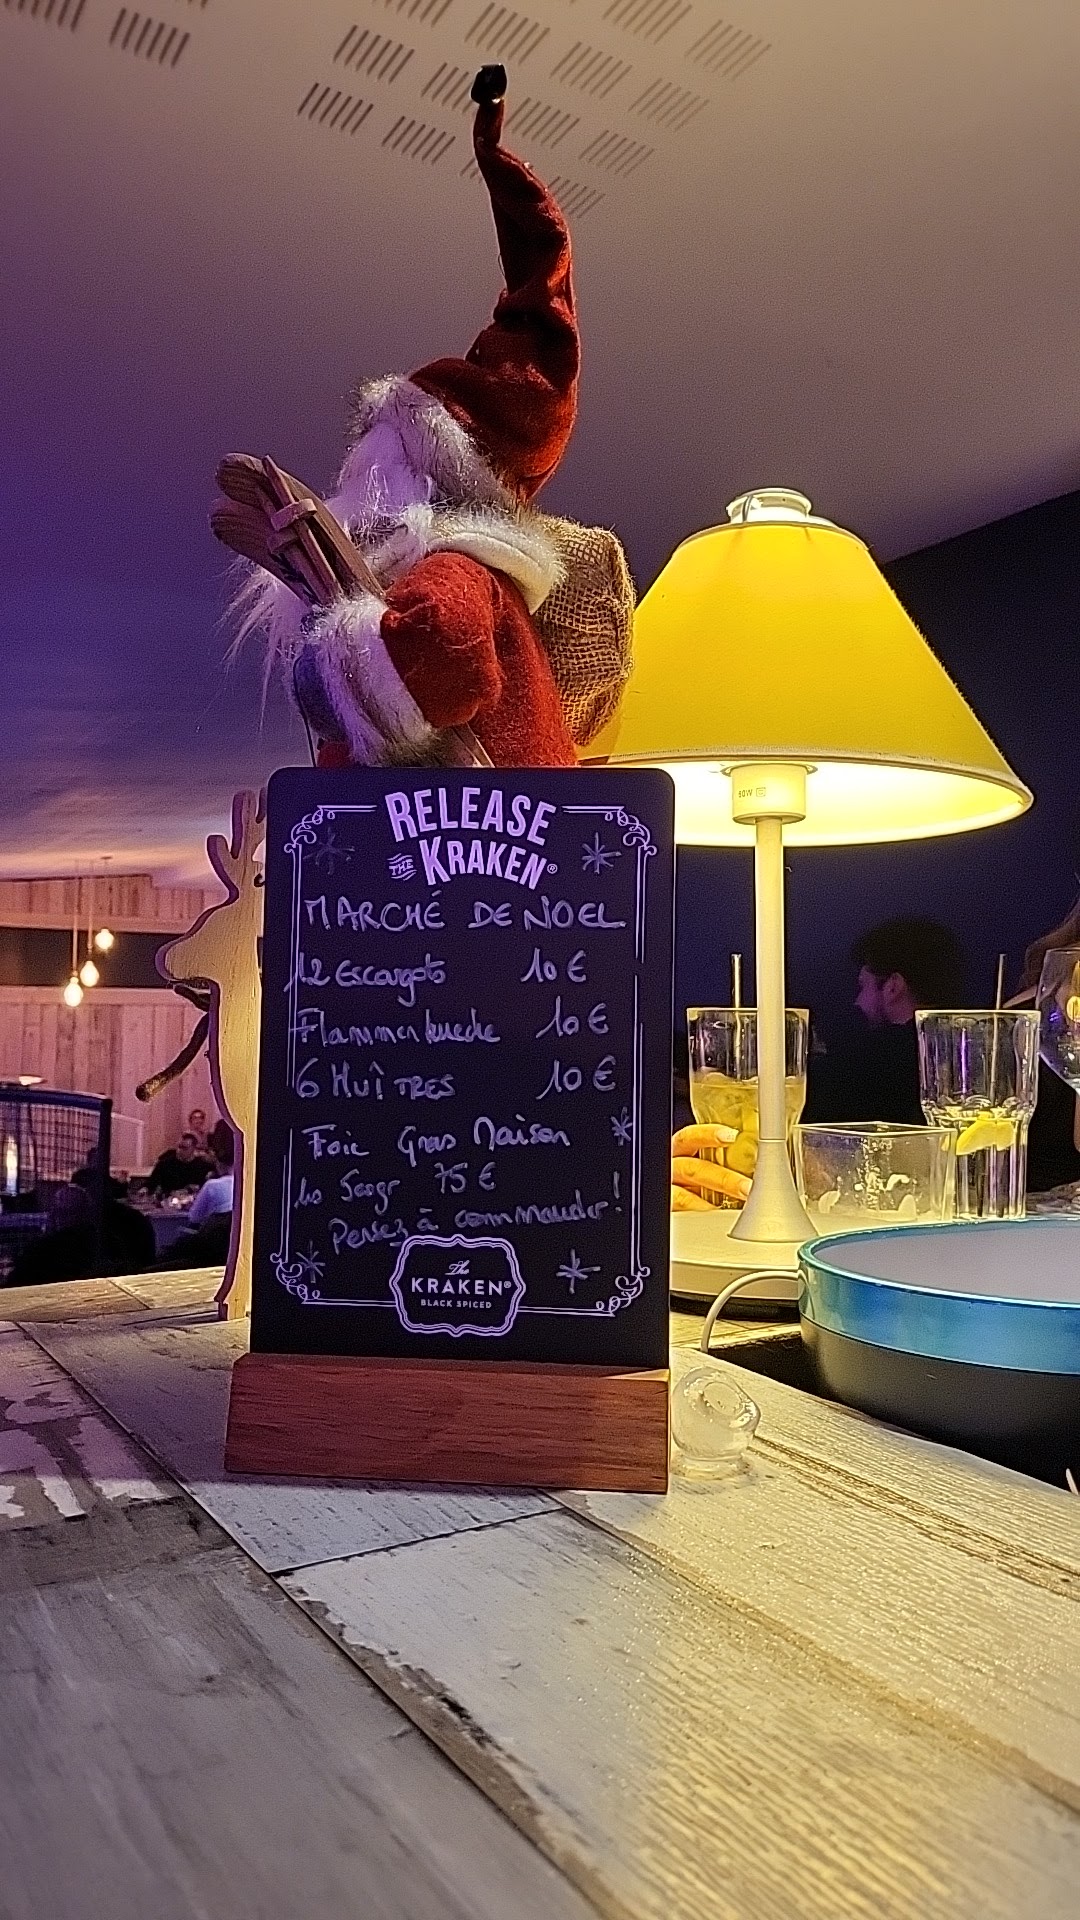 RELEASE
THE KRAKEN®
MARCHÉ DE NOEL
12 Escargots 10 €
Flammenkueche 10 €
6 HUÎTRES 10 €
Foie Gras Maison
75 €
Pensez à commander!
The
KRAKEN®
BLACK SPICED
60W